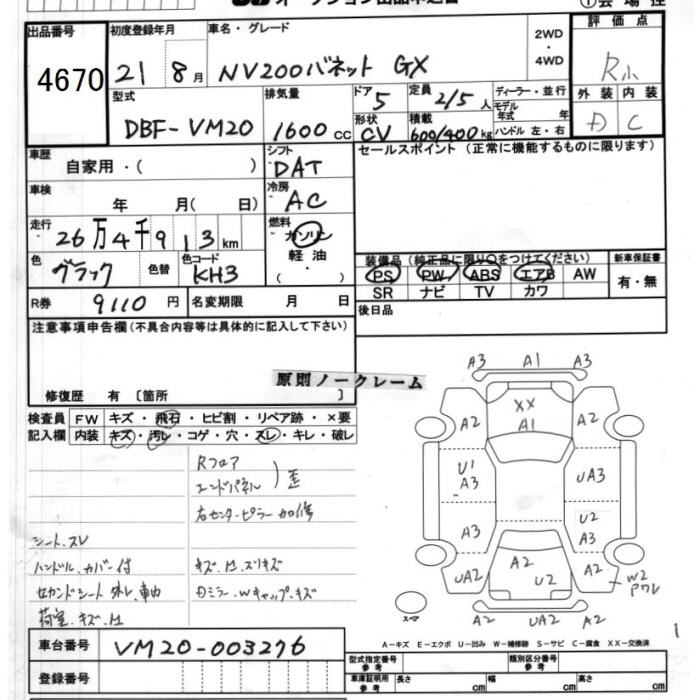 オークション出品申込書
出品番号
4670
初度登録年月
21 8月
車名・グレード
NV200バネット GX
2WD
・
4WD
評価点
R小
外装 内装
D C
型式
DBF-VM20
排気量
1600 cc
ドア
5
形状
CV
定員
2/5人
積載
600/400kg
ディーラー・並行
モデル
年式 年
ハンドル 左・右
車歴
自家用・( )
シフト
DAT
セールスポイント (正常に機能するものに限ります)
車検
年 月( 日)
冷房
AC
走行
26万4千913km
燃料
ガソリン
軽油
( )
色
ブラック
色替
色コード
KH3
装備品(純正品に限り○をつけてください)
PS PW ABS エアB AW
SR ナビ TV カワ
新車保証書
有・無
R券
9110円
名変期限 月 日
後日品
注意事項申告欄(不具合内容等は具体的に記入して下さい)
修復歴 有〔箇所 〕
原則ノークレーム
検査員
記入欄
FW キズ・飛石・ヒビ割・リペア跡・×要
内装 キズ・汚レ・コゲ・穴・スレ・キレ・破レ
Rフロア
エンドパネル ) 歪
右センターピラー加修
シート.スレ
ハンドル.カバー付
セカンドシート外レ.車内
荷室.キズ.凹
キズ.凹.スリキズ
Dミラー.Wキャップ.キズ
A3 A1 A3
A2 XX A1 A2
U1 A3 UA3
A3 U2 A3
UA2 A2 U2 A2
W2 アワレ
A2 UA2 A2
スペア
A－キズ E－エクボ U－凹み W－補修跡 S－サビ C－腐食 XX－交換済
1
車台番号
VM20-003276
登録番号
型式指定番号
参考
類別区分番号
参考
車庫証明用
参考
長さ cm
幅 cm
高さ cm